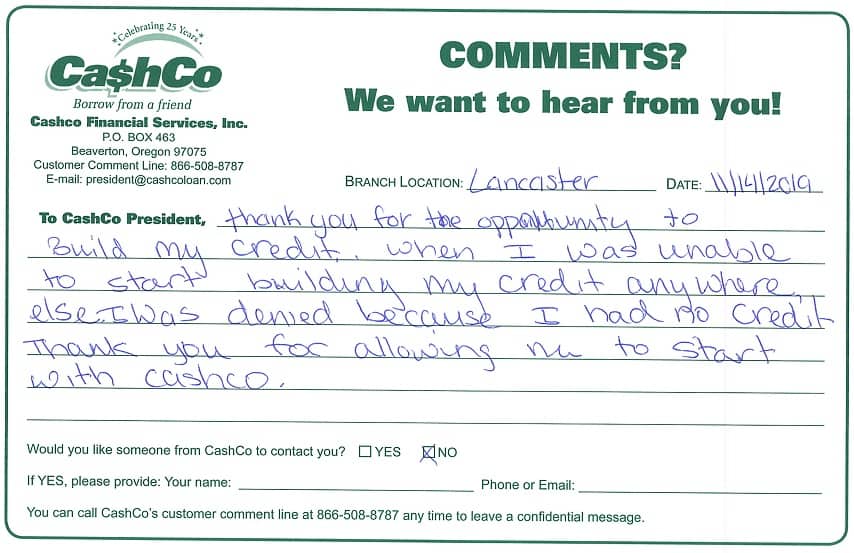 Celebrating 25 Years
Ca$hCo
Borrow from a friend
Cashco Financial Services, Inc.
P.O. BOX 463
Beaverton, Oregon 97075
Customer Comment Line: 866-508-8787
E-mail: president@cashcoloan.com
COMMENTS?
We want to hear from you!
BRANCH LOCATION: Lancaster DATE: 11/14/2019
To CashCo President, thank you for the opportunity to
Build my credit. when I was unable
to start building my credit anywhere
else. I was denied because I had no credit
Thank you for allowing me to start
with cashco.
Would you like someone from CashCo to contact you? YES NO
If YES, please provide: Your name: Phone or Email:
You can call CashCo's customer comment line at 866-508-8787 any time to leave a confidential message.